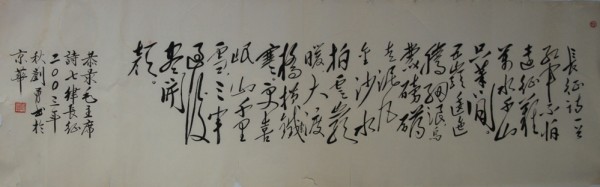 長征詩一首
紅軍不怕
遠征難
萬水千山
只等閒
五嶺逶迤
騰細浪烏
蒙磅礴
走泥丸
金沙水
拍雲崖
暖大渡
橋橫鐵
寒更喜
岷山千里
雪三軍
過後
盡開
顏
恭录毛主席
詩七律長征
二〇〇三年
秋劉勇書於
京華